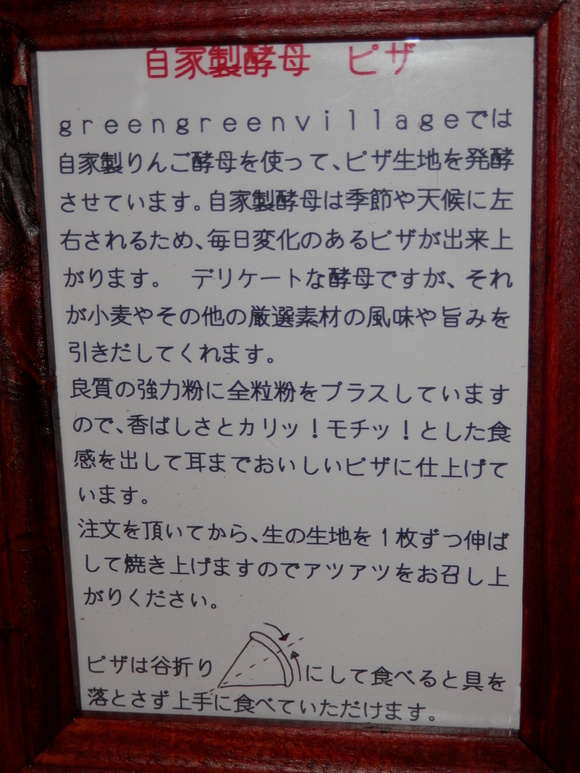 自家製酵母　ピザ
ｇｒｅｅｎｇｒｅｅｎｖｉｌｌａｇｅでは
自家製りんご酵母を使って、ピザ生地を発酵
させています。自家製酵母は季節や天候に左
右されるため、毎日変化のあるピザが出来上
がります。　デリケートな酵母ですが、それ
が小麦やその他の厳選素材の風味や旨みを
引きだしてくれます。
良質の強力粉に全粒粉をプラスしています
ので、香ばしさとカリッ！モチッ！とした食
感を出して耳までおいしいピザに仕上げて
います。
注文を頂いてから、生の生地を１枚ずつ伸ば
して焼き上げますのでアツアツをお召し上
がりください。
ピザは谷折り　にして食べると具を
落とさず上手に食べていただけます。